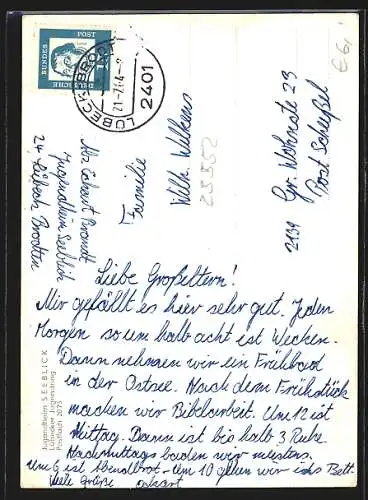 DEUTSCHE
BUNDES
POST
15
LÜBECK-BRODTEN
21-7.64-
2401
€6,-
Abs. Eckart Brandt
Jugendheim Seeblick
24 Lübeck Brodten
Familie
Wilh. Wilkens
25552
2139
Gr. Wohnste 23
Post Scheeßel
Liebe Großeltern!
Mir gefällt es hier sehr gut. Jeden
Morgen so um halb acht ist Wecken.
Dann nehmen wir ein Frühbad
in der Ostsee. Nach dem Frühstück
machen wir Bibelarbeit. Um 12 ist
Mittag. Dann ist bis halb 3 Ruhe
Nachmittags baden wir meistens.
Um 6 ist Abendbrot. Um 10 gehen wir ins Bett.
Viele Grüße Eckart
Jugendheim SEEBLICK
Lübecker Jugendring
Postfach 2075